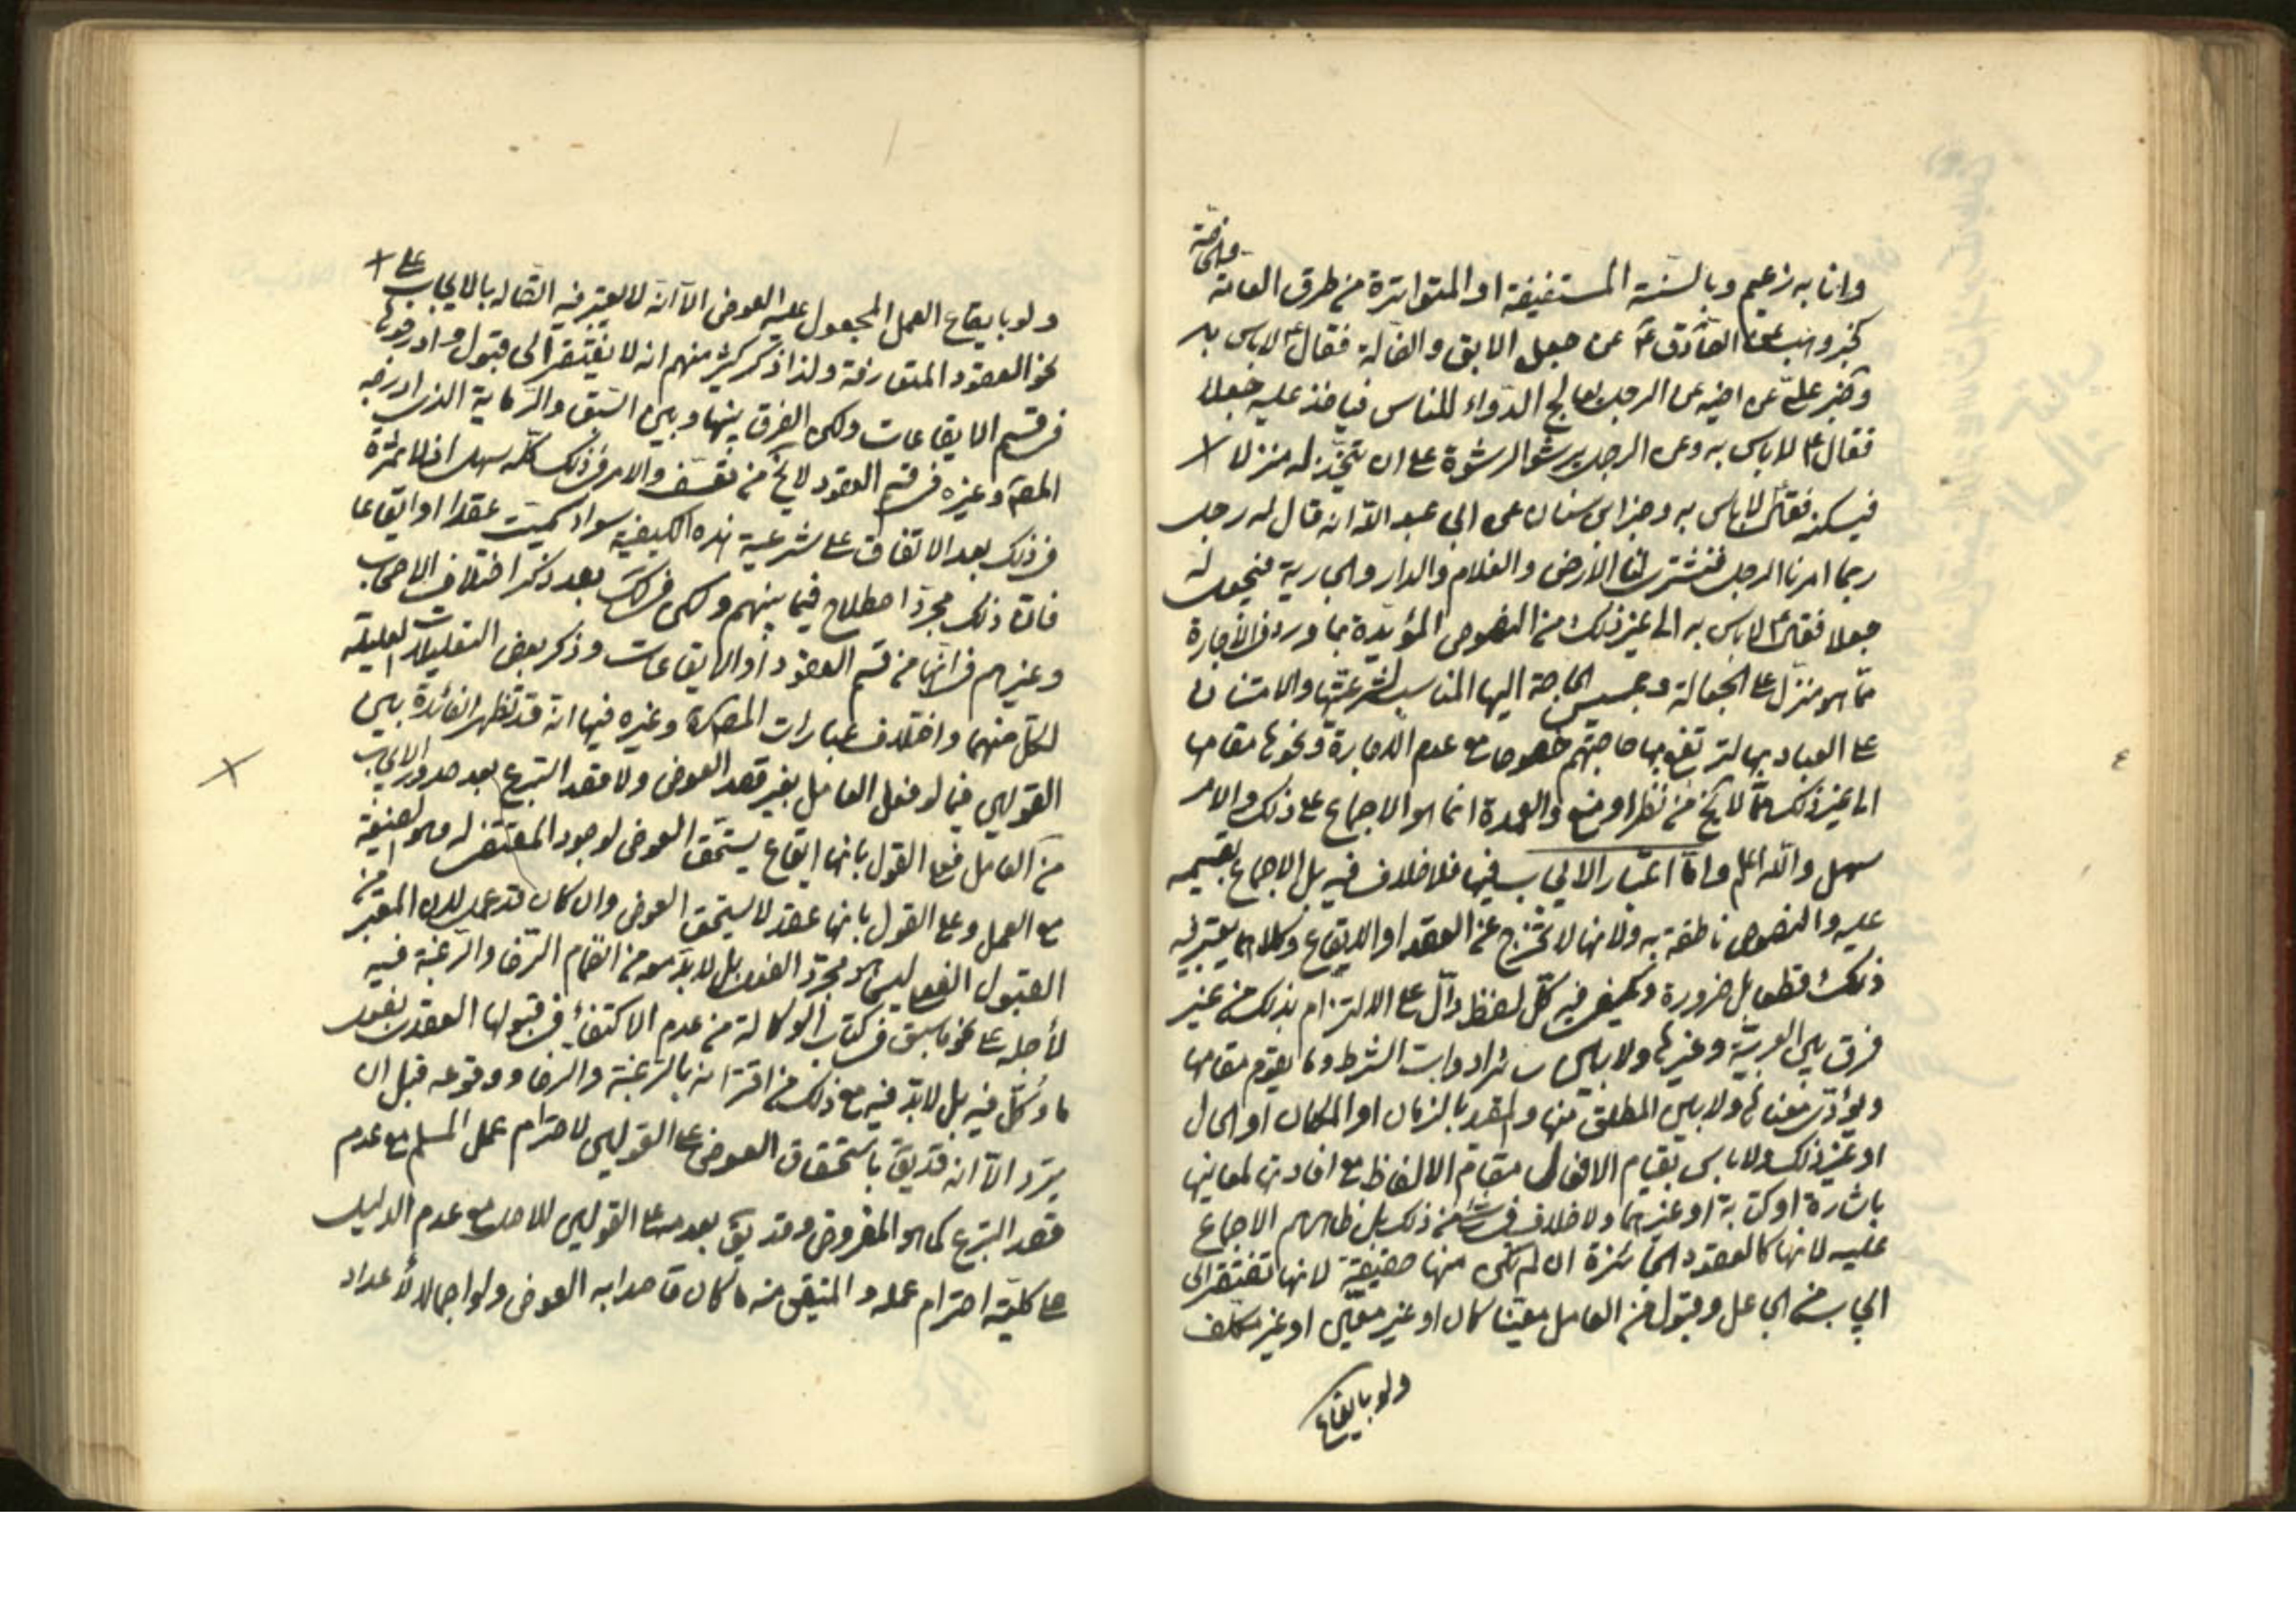 وانا به زعيم وبالسنة المستفيضة او المتواترة من طرق العامة والخاصة
كخبر وهب عن الصادق ع عن جعل الابق والضالة فقال ع لاباس به
وخبر علي عن اخيه عن الرجل يعالج الدواء للناس فياخذ عليه جعلا
فقال ع لاباس به وعن الرجل يرشو الرشوة على ان يتحول له منزلا
فيسكنه فقال لاباس به وخبر ابن سنان عن ابي عبد الله انه قال له رجل
ربما امرنا الرجل فنشتري لنا الارض والغلام والدار والجارية فنجعل له
جعلا فقال ع لاباس به الى غير ذلك من النصوص المؤيدة بما ورد في الاجارة
مما هو منزل على الجعالة وبمسيس الحاجة اليها المناسب لشرعيتها والامتنان
على العباد بها لترتفع بها حاجتهم خصوصا مع عدم الاجارة ونحوها مقامها
الى غير ذلك مما لا يخ من نظر او منع والعمدة انما هو الاجماع على ذلك والامر
سهل والله اعلم واما اعتبار الايجاب فيها فلا خلاف فيه بل الاجماع بقسميه
عليه والنصوص ناطقة به ولانها لا تخرج عن العقد او الايقاع وكلاهما يعتبر فيه
ذلك قطعا بل ضرورة ويكفي فيه كل لفظ دال على الالتزام بذلك من غير
فرق بين العربية وغيرها ولا بين سائر ادوات الشرط وما يقوم مقامها
ويؤدي معناها ولا بين المطلق منها والمقيد بالزمان او المكان او الحال
او غير ذلك ولاباس بقيام الافعال مقام الالفاظ مع افادتها لمعانيها
باشارة او كتابة او غيرهما ولا خلاف في شئ من ذلك بل ظاهرهم الاجماع
عليه لانها كالعقود الجائزة ان لم تكن منها حقيقة لانها تفتقر الى
ايجاب من الجاعل وقبول من العامل معينا كان او غير معين او غير مكلف
ولو بايقاع
ولو بايقاع العمل المجعول عليه العوض الا انه لا يعتبر فيه اتصاله بالايجاب على
نحو العقود المتعارفة ولذا ذكر كثير منهم انه لا يفتقر الى قبول وادرجوها
في قسم الايقاعات ولكن الفرق بينها وبين السبق والرماية الذي ادرجه
المصنف وغيره في قسم العقود لا يخ من تعسف والامر في ذلك كله سهل اذ لا ثمرة
في ذلك بعد الاتفاق على شرعية هذه الكيفية سواء سميت عقدا او ايقاعا
فان ذلك مجرد اصطلاح فيما بينهم ولكن في لك بعد ذكر اختلاف الاصحاب
وغيرهم في انها من قسم العقود او الايقاعات وذكر بعض التعليلات العليلة
لكل منهما واختلاف عبارات المصنف وغيره فيها انه قد تظهر الفائدة بين
القولين فيما لو فعل العامل بغير قصد العوض ولا قصد التبرع بعد صدور الايجاب
من العامل فعلى القول بانها ايقاع يستحق العوض لوجود المقتضي له وهو الصيغة
مع العمل وعلى القول بانها عقد لا يستحق العوض وان كان قد عمل لان المعتبر من
القبول الفعلي ليس هو مجرد الفعل بل لابد معه من انضمام الرضا والرغبة فيه
لأجله على نحو ما سبق في كتاب الوكالة من عدم الاكتفاء في قبولها العقدي بفعل
ما وكل فيه بل لابد فيه مع ذلك من اقترانه بالرغبة والرضا ووقوعه قبل ان
يرد الا انه قد يق باستحقاق العوض على القولين لاحترام عمل المسلم مع عدم
قصد التبرع كما هو المفروض وقد يق بعدمه على القولين للاصل مع عدم الدليل
على كلية احترام عمله والمتيقن منه ما كان قاصدا به العوض ولو اجمالا لأعداد